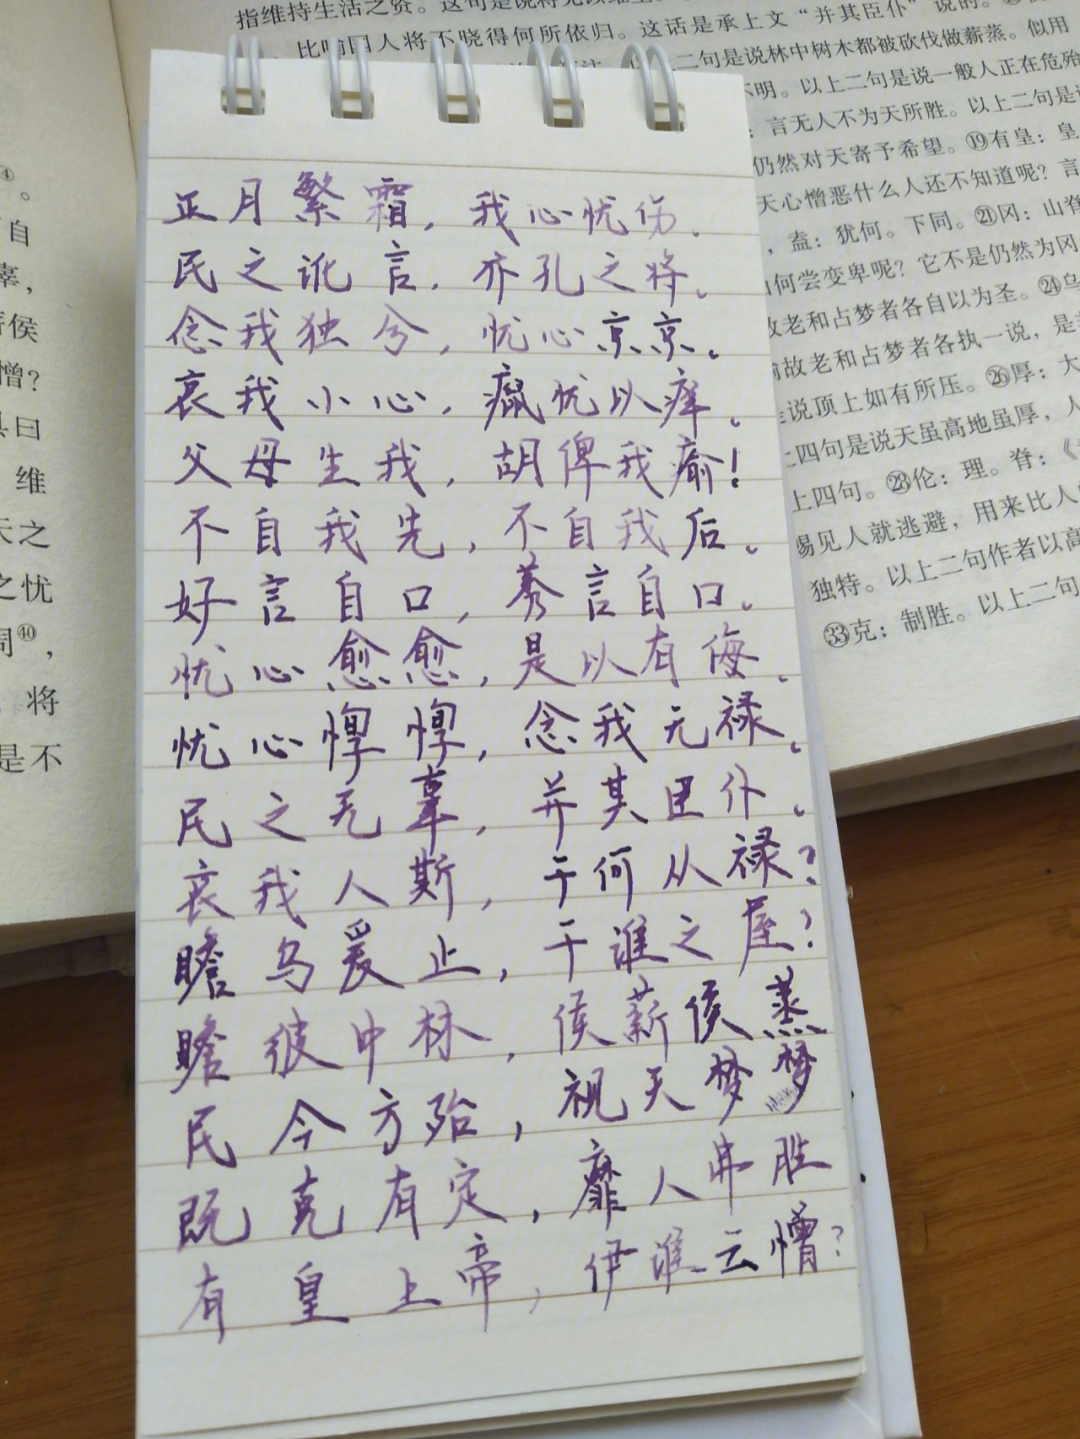 指维持生活之资。这句是说将无以维
比喻国人将不晓得何所依归。这话是承上文“并其臣仆”说的。
二句是说林中树木都被砍伐做薪蒸。似用
不明。以上二句是说一般人正在危殆
：言无人不为天所胜。以上二句是说
仍然对天寄予希望。⑲有皇：皇
天心憎恶什么人还不知道呢？言
，盍：犹何。下同。㉑冈：山脊
何尝变卑呢？它不是仍然为冈
故老和占梦者各自以为圣。㉔乌
喻故老和占梦者各执一说，是
说顶上如有所压。㉖厚：大
上四句是说天虽高地虽厚，人
上四句。㉘伦：理。脊：《
蜴见人就逃避，用来比人
独特。以上二句作者以高
㉝克：制胜。以上二句
④。
自
辜，
侯
憎？
具曰
维
天之
之忧
㊵，
将
是不
正月繁霜，我心忧伤。
民之讹言，亦孔之将。
念我独兮，忧心京京。
哀我小心，癙忧以痒。
父母生我，胡俾我瘉！
不自我先，不自我后。
好言自口，莠言自口。
忧心愈愈，是以有侮。
忧心惸惸，念我无禄。
民之无辜，并其臣仆。
哀我人斯，于何从禄？
瞻乌爰止，于谁之屋？
瞻彼中林，侯薪侯蒸
民今方殆，视天梦梦
既克有定，靡人弗胜
有皇上帝，伊谁云憎？